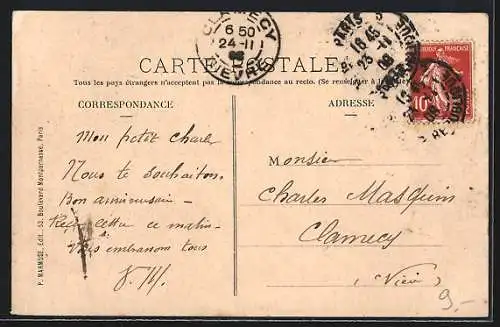 CLAMECY
6 50
24-11
08
NIÈVRE
PARIS
18 45
23-11
08
RÉPUBLIQUE FRANÇAISE
10
CARTE POSTALE
Tous les pays étrangers n'acceptent pas la correspondance au recto. (Se renseigner à la
CORRESPONDANCE
Mon petit Charles
Nous te souhaitons
Bon anniversaire –
Reçu lettre ce matin –
Vous embrassons tous
ADRESSE
Monsieur
Charles Masquin
Clamecy
(Nièvre)
9.–
P. MARMUSE, Edit., 53, Boulevard Montparnasse, Paris